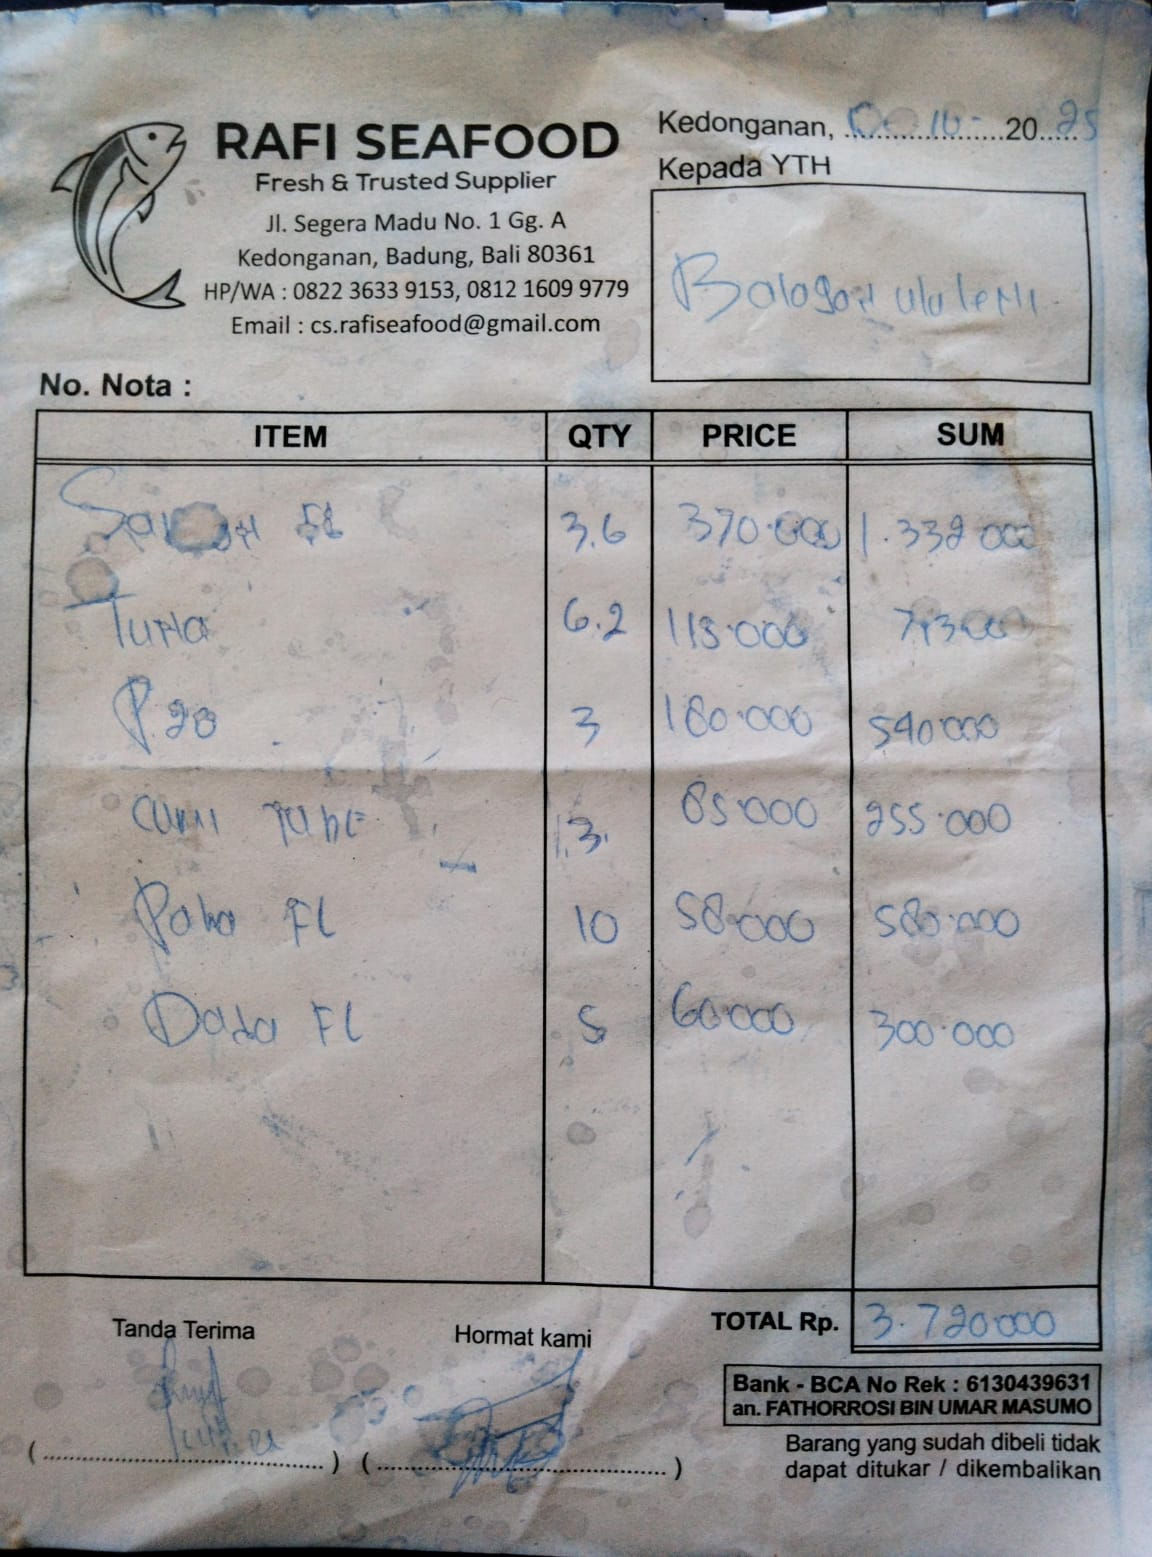 RAFI SEAFOOD
Fresh & Trusted Supplier
Jl. Segera Madu No. 1 Gg. A
Kedonganan, Badung, Bali 80361
HP/WA : 0822 3633 9153, 0812 1609 9779
Email : cs.rafiseafood@gmail.com
Kedonganan, 10- 2025
Kepada YTH
No. Nota :
ITEM QTY PRICE SUM
FL 3.6 370.000 1.332 000
Tuna 6.2 115.000 713000
P.20 3 180.000 540000
Cumi Tube 3 85.000 255.000
Paha FL 10 58.000 580.000
Dada FL 5 60.000 300.000
TOTAL Rp. 3.720000
Tanda Terima Hormat kami
Bank - BCA No Rek : 6130439631
an. FATHORROSI BIN UMAR MASUMO
Barang yang sudah dibeli tidak
dapat ditukar / dikembalikan